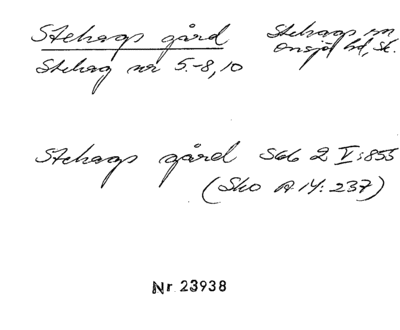 Stehags gård
Stehags sn
Onsjö hd, Sk.
Stehag nr 5-8, 10
Stehags gård S66 2 V:855
(Sko A 14: 237)
Nr 23938